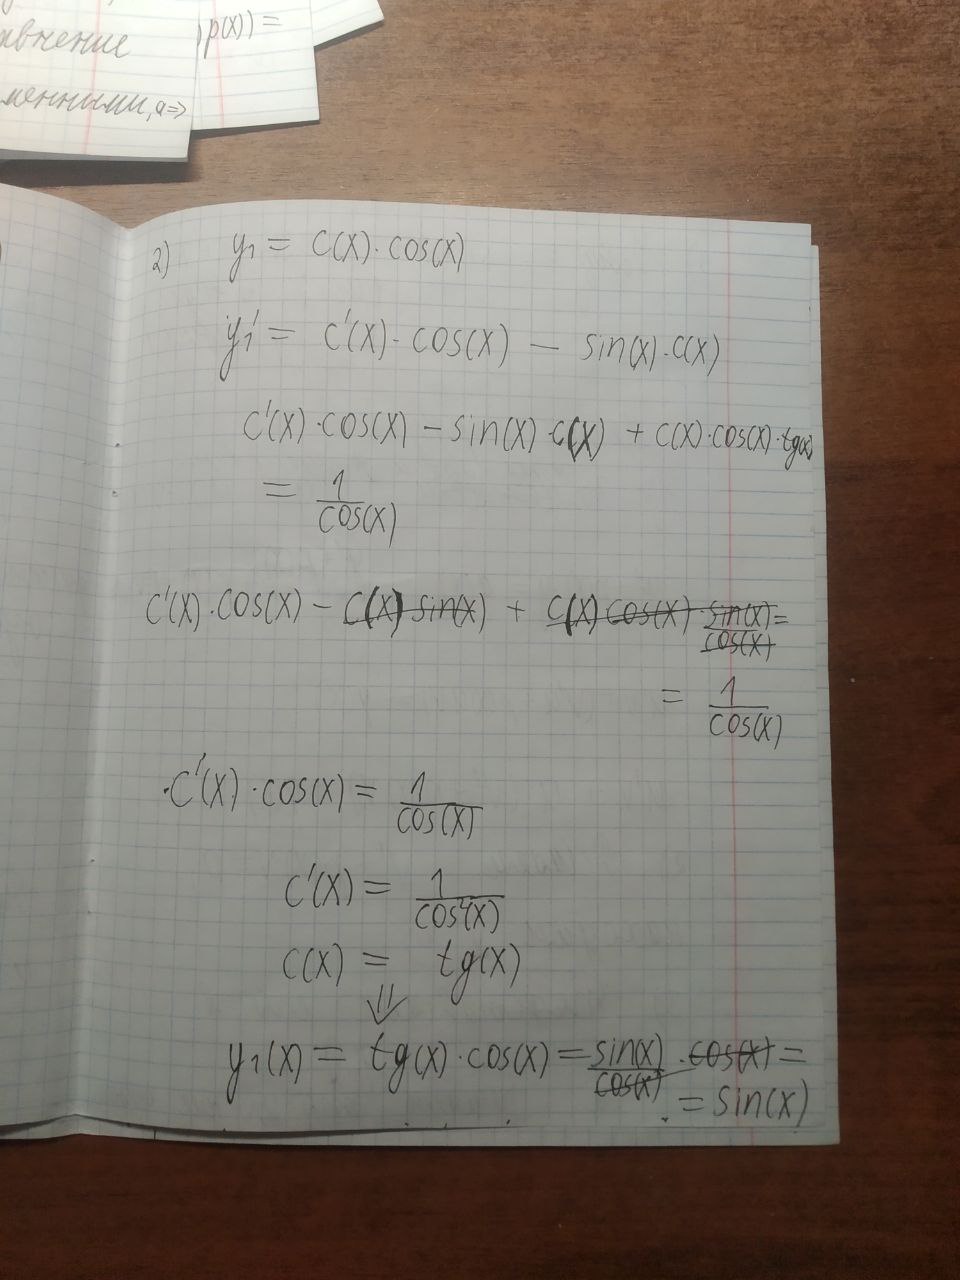 авнение
менными, а =>
p(x)) =
2) y₁ = C(x) · cos(x)
y₁' = C'(x) · cos(x) − sin(x) · C(x)
C'(x) · cos(x) − sin(x) · C(x) + C(x) · cos(x) · tg(x)
= 1/cos(x)
C'(x) · cos(x) − C(x) sin(x) + C(x) cos(x) · sin(x)/cos(x) =
= 1/cos(x)
· C'(x) · cos(x) = 1/cos(x)
C'(x) = 1/cos²(x)
C(x) = tg(x)
⇓
y₁(x) = tg(x) · cos(x) = sin(x)/cos(x) · cos(x) =
= sin(x)